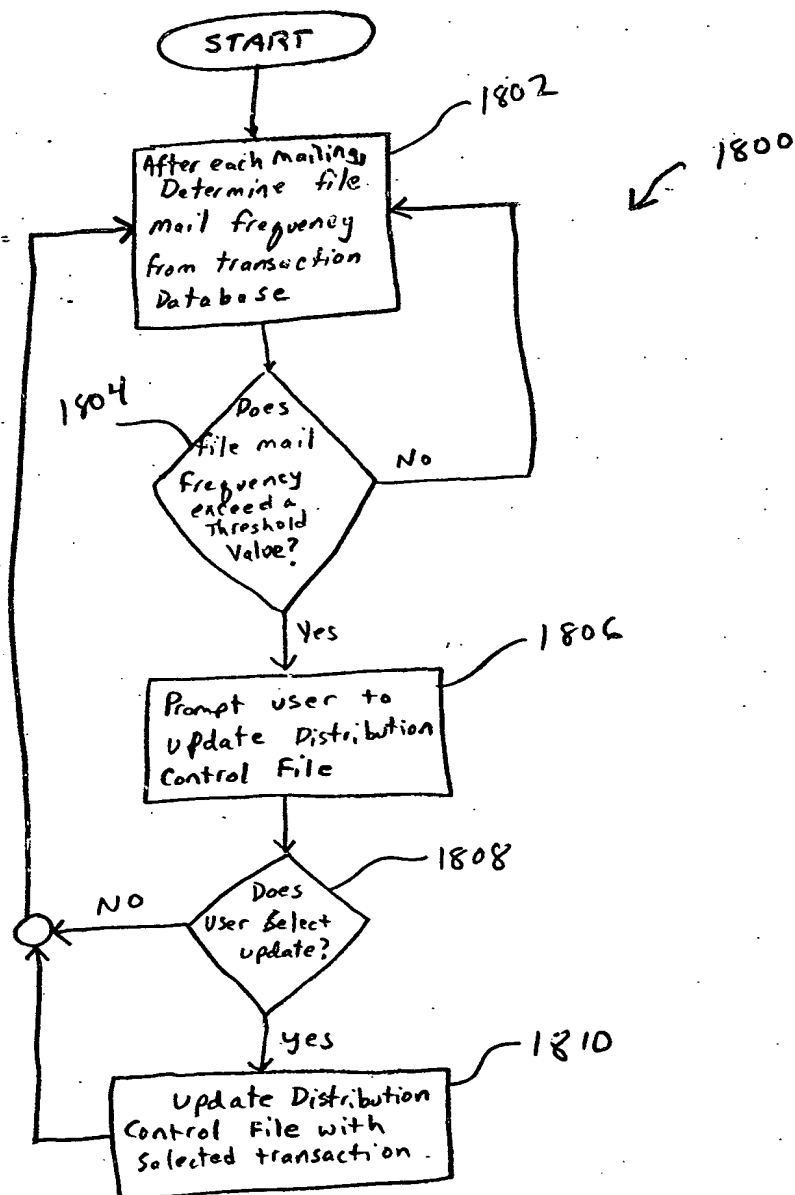 START
1802
1800
After each mailing,
Determine file
mail frequency
from transaction
Database
1804
Does
file mail
frequency
exceed a
Threshold
Value?
No
Yes
1806
Prompt user to
update Distribution
Control File
1808
Does
User Select
update?
NO
yes
1810
Update Distribution
Control File with
Selected transaction.